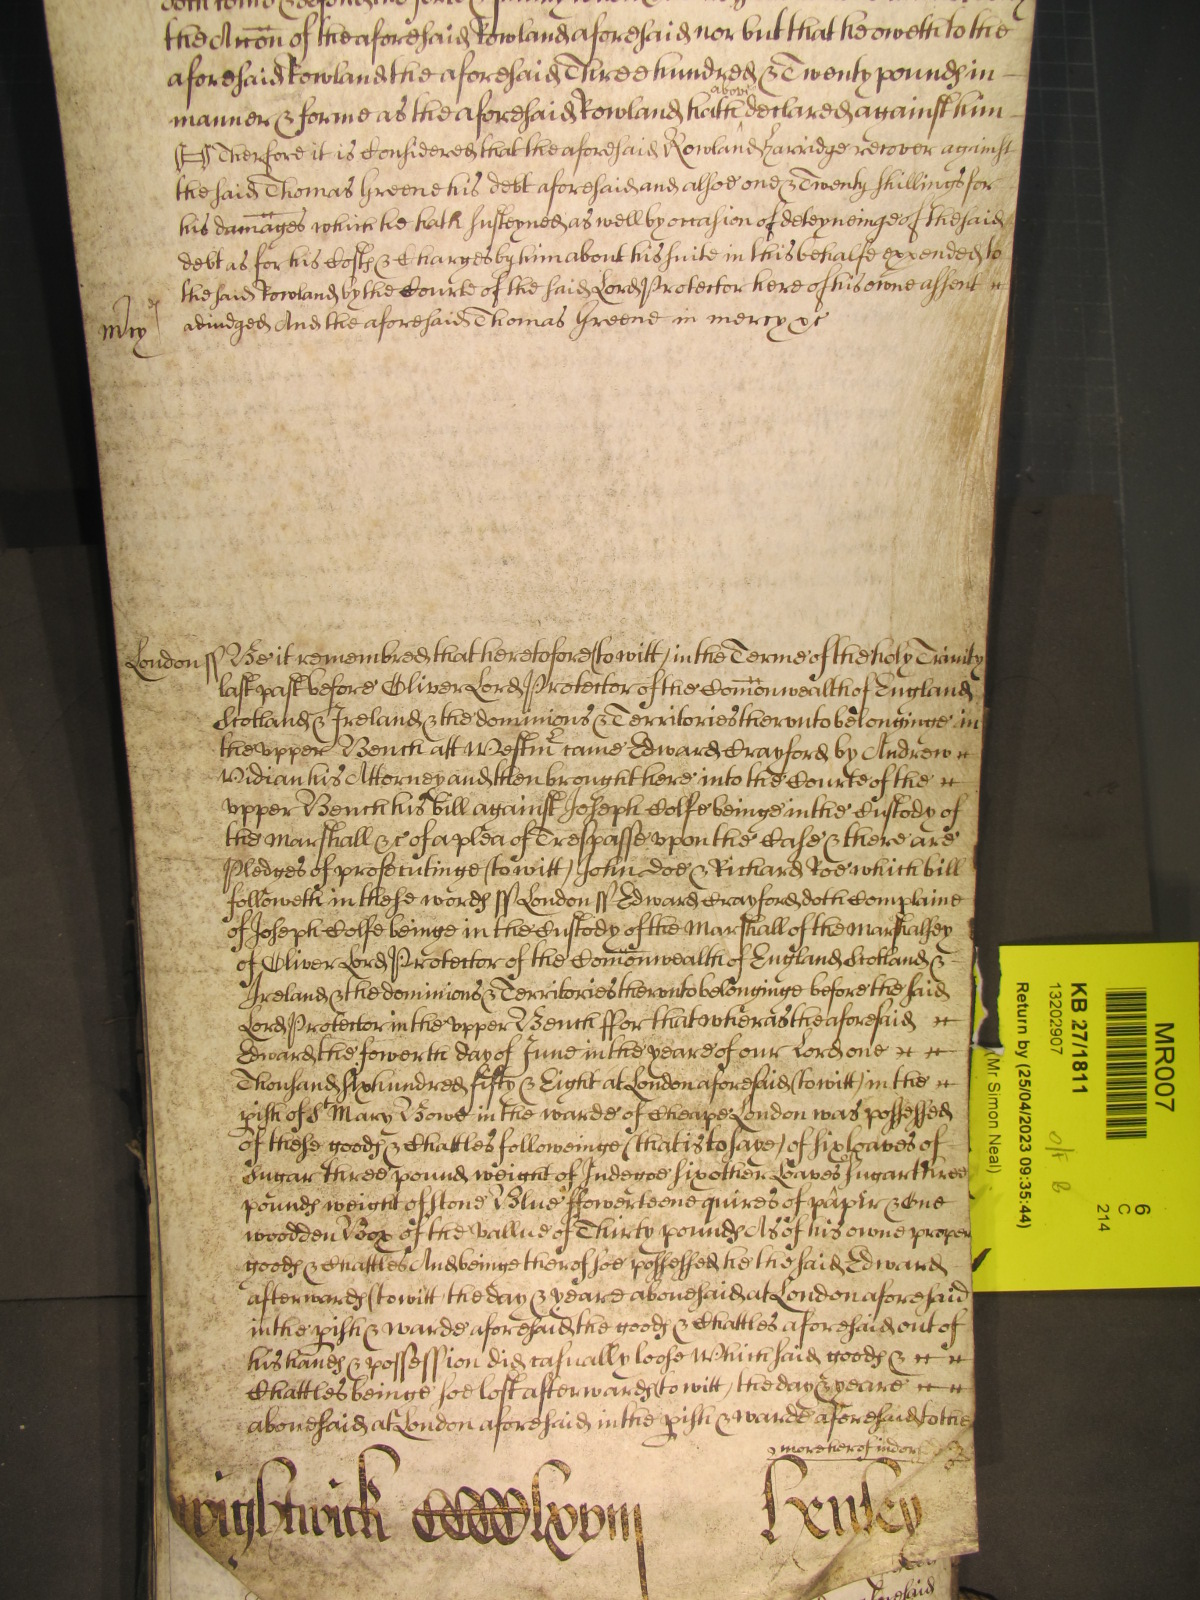 the Accon of the aforesaid Rowland aforesaid nor but that he oweth to the
aforesaid Rowland the aforesaid Three hundred & Twenty pounds in
manner & forme as the aforesaid Rowland hath above declared against him
Therfore it is Considered that the aforesaid Rowland Harridge recover against
the said Thomas Greene his debt aforesaid and alsoe one & Twenty shillings for
his damages which he hath susteyned as well by occasion of deteyneinge of the said
debt as for his Costs & Charges by him about his suite in this behalfe expended to
the said Rowland by the Courte of the said Lord Protector here of his owne assent
mercy adiudged And the aforesaid Thomas Greene in mercy &c
London ss Be it remembred that heretofore (to witt) in the Terme of the holy Trinity
last past before Oliver Lord Protector of the Comonwealth of England
Scotland & Ireland & the dominions & Territories therunto belonginge in
the vpper Bench att Westmr came Edward Crayford by Andrew
Vidian his Attorney and then brought here into the Courte of the
vpper Bench his bill against Joseph Colfe beinge in the Custody of
the Marshall &c of a plea of Trespasse vpon the Case & there are
Pledges of prosecutinge (to witt) John Doe & Richard Roe which bill
followeth in these words ss London ss Edward Crayford doth Complaine
of Joseph Colfe beinge in the Custody of the Marshall of the Marshalsey
of Oliver Lord Protector of the Comonwealth of England Scotland &
Ireland & the dominions & Territories therunto belonginge before the said
Lord Protector in the vpper Bench ffor that wheras the aforesaid
Edward the fowerth day of June in the yeare of our Lord one
Thousand six hundred fifty & Eight at London aforesaid (to witt) in the
pish of St Mary Bowe in the warde of Cheape London was possessed
of these goods & Chattles followeinge (that is to saye) of six loaves of
Sugar three pound weight of Indegoe six other Loaves of Sugar three
pounds weight of stone Blue ffowerteene quires of papir & One
woodden Box of the vallue of Thirty pounds As of his owne proper
goods & Chattles And beinge therof soe possessed he the said Edward
afterwards (to witt) the day & yeare abovesaid at London aforesaid
in the pish & warde aforesaid the goods & Chattles aforesaid out of
his hands & possession did casually loose Which said goods &
Chattles beinge soe lost afterwards (to witt) the day & yeare
abovesaid at London aforesaid in the pish & warde aforesaid to the
more herof in dors
Wightwick CCCCClxviij Henley
aforesaid
MR007
6
C
214
KB 27/1811
13202907
Return by (25/04/2023 09:35:44)
(Mr Simon Neal)